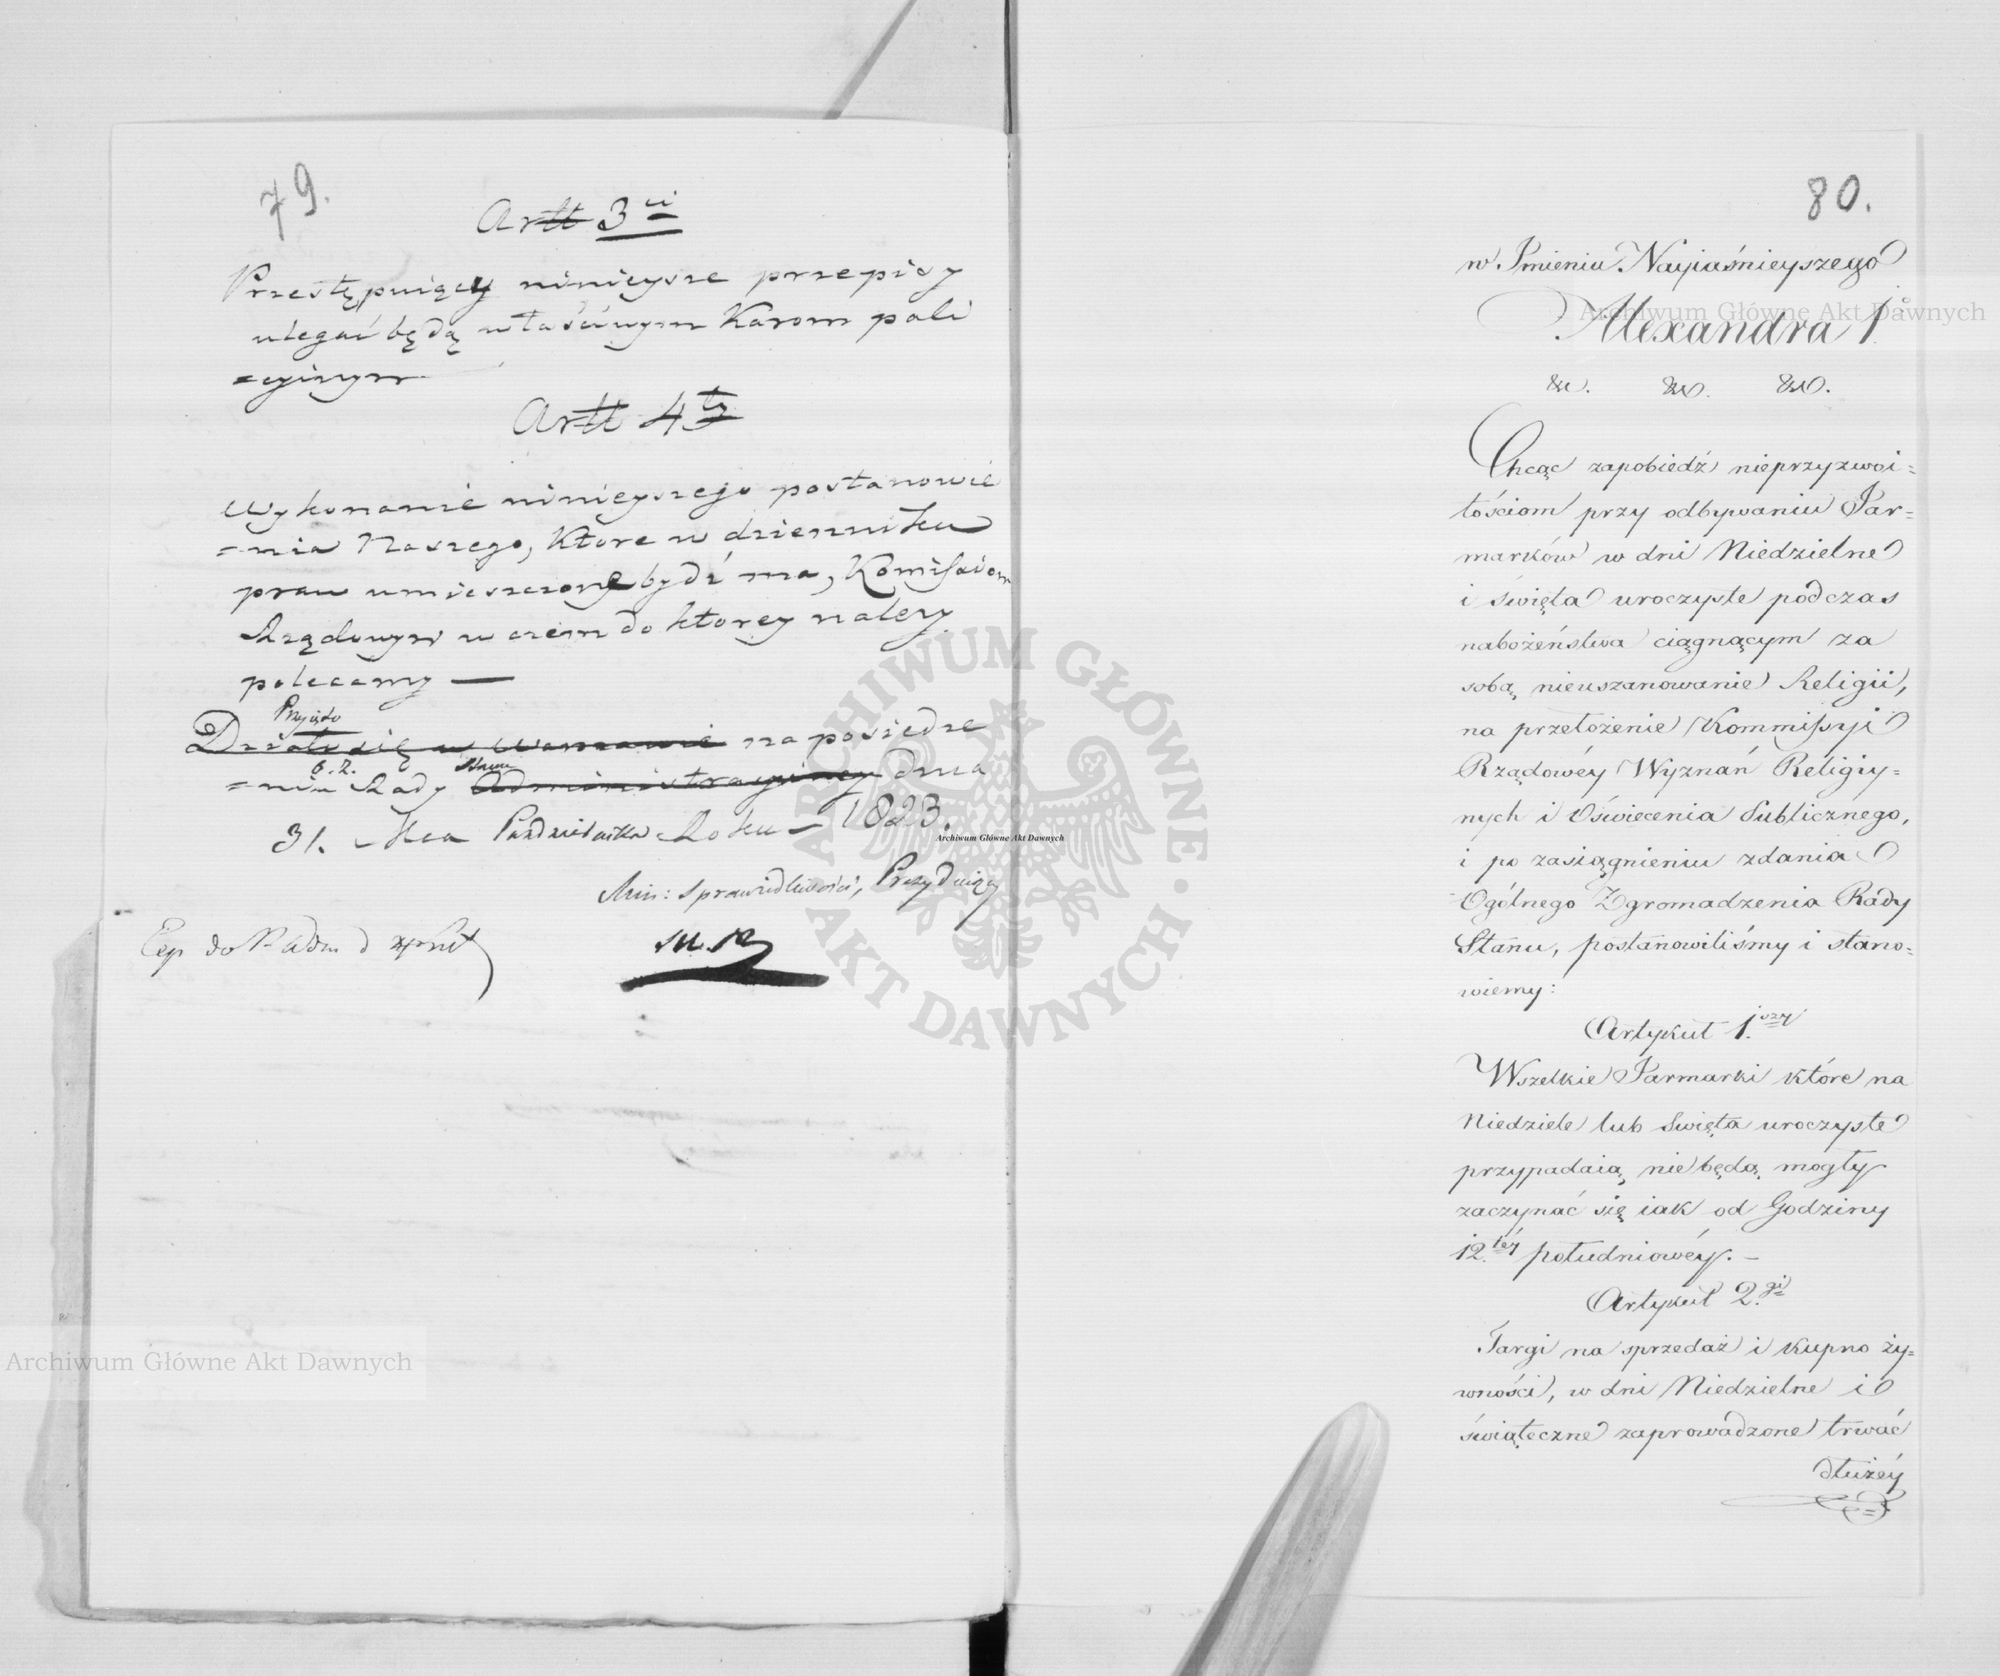 79.
Artt 3ci
Przestępuiący ninieysze przepisy
ulegać będą właściwym Karom poli
=cyinym
Artt 4ty
Wykonanie ninieyszego postanowie
=nia Naszego, które w dzienniku
praw umieszczone bydź ma, Komissiom
Rządowym w czem do ktorey należy
polecamy —
Przyięto
Działo się w Warszawie na posiedze
=niu Rady Administracyiney dnia
31. Mca Października Roku – 1823.
Min: Sprawiedliwości, Prezyduiący
80.
w Jmieniu Nayiaśnieyszego
Alexandra I.
&c. &c. &c.
Chcąc zapobiedź nieprzyzwoi=
tościom przy odbywaniu Jar=
marków w dni Niedzielne
i święta uroczyste podczas
nabożeństwa ciągnącym za
sobą nieuszanowanie Religii,
na przełożenie Kommissyi
Rządowéy Wyznań Religiy=
nych i Oświecenia Publicznego,
i po zasiągnieniu zdania
Ogólnego Zgromadzenia Rady
Stanu, postanowiliśmy i stano=
wiemy:
Artykuł 1.szy
Wszelkie Jarmarki które na
Niedziele lub Święta uroczyste
przypadaią, nie będą mogły
zaczynać się iak od Godziny
12.téy południowéy. —
Artykuł 2.gi
Targi na sprzedaż i kupno ży=
wności, w dni Niedzielne i
świąteczne zaprowadzone trwać
dłużéy
Archiwum Główne Akt Dawnych
Archiwum Główne Akt Dawnych
Archiwum Główne Akt Dawnych
ARCHIWUM GŁÓWNE • AKT DAWNYCH •